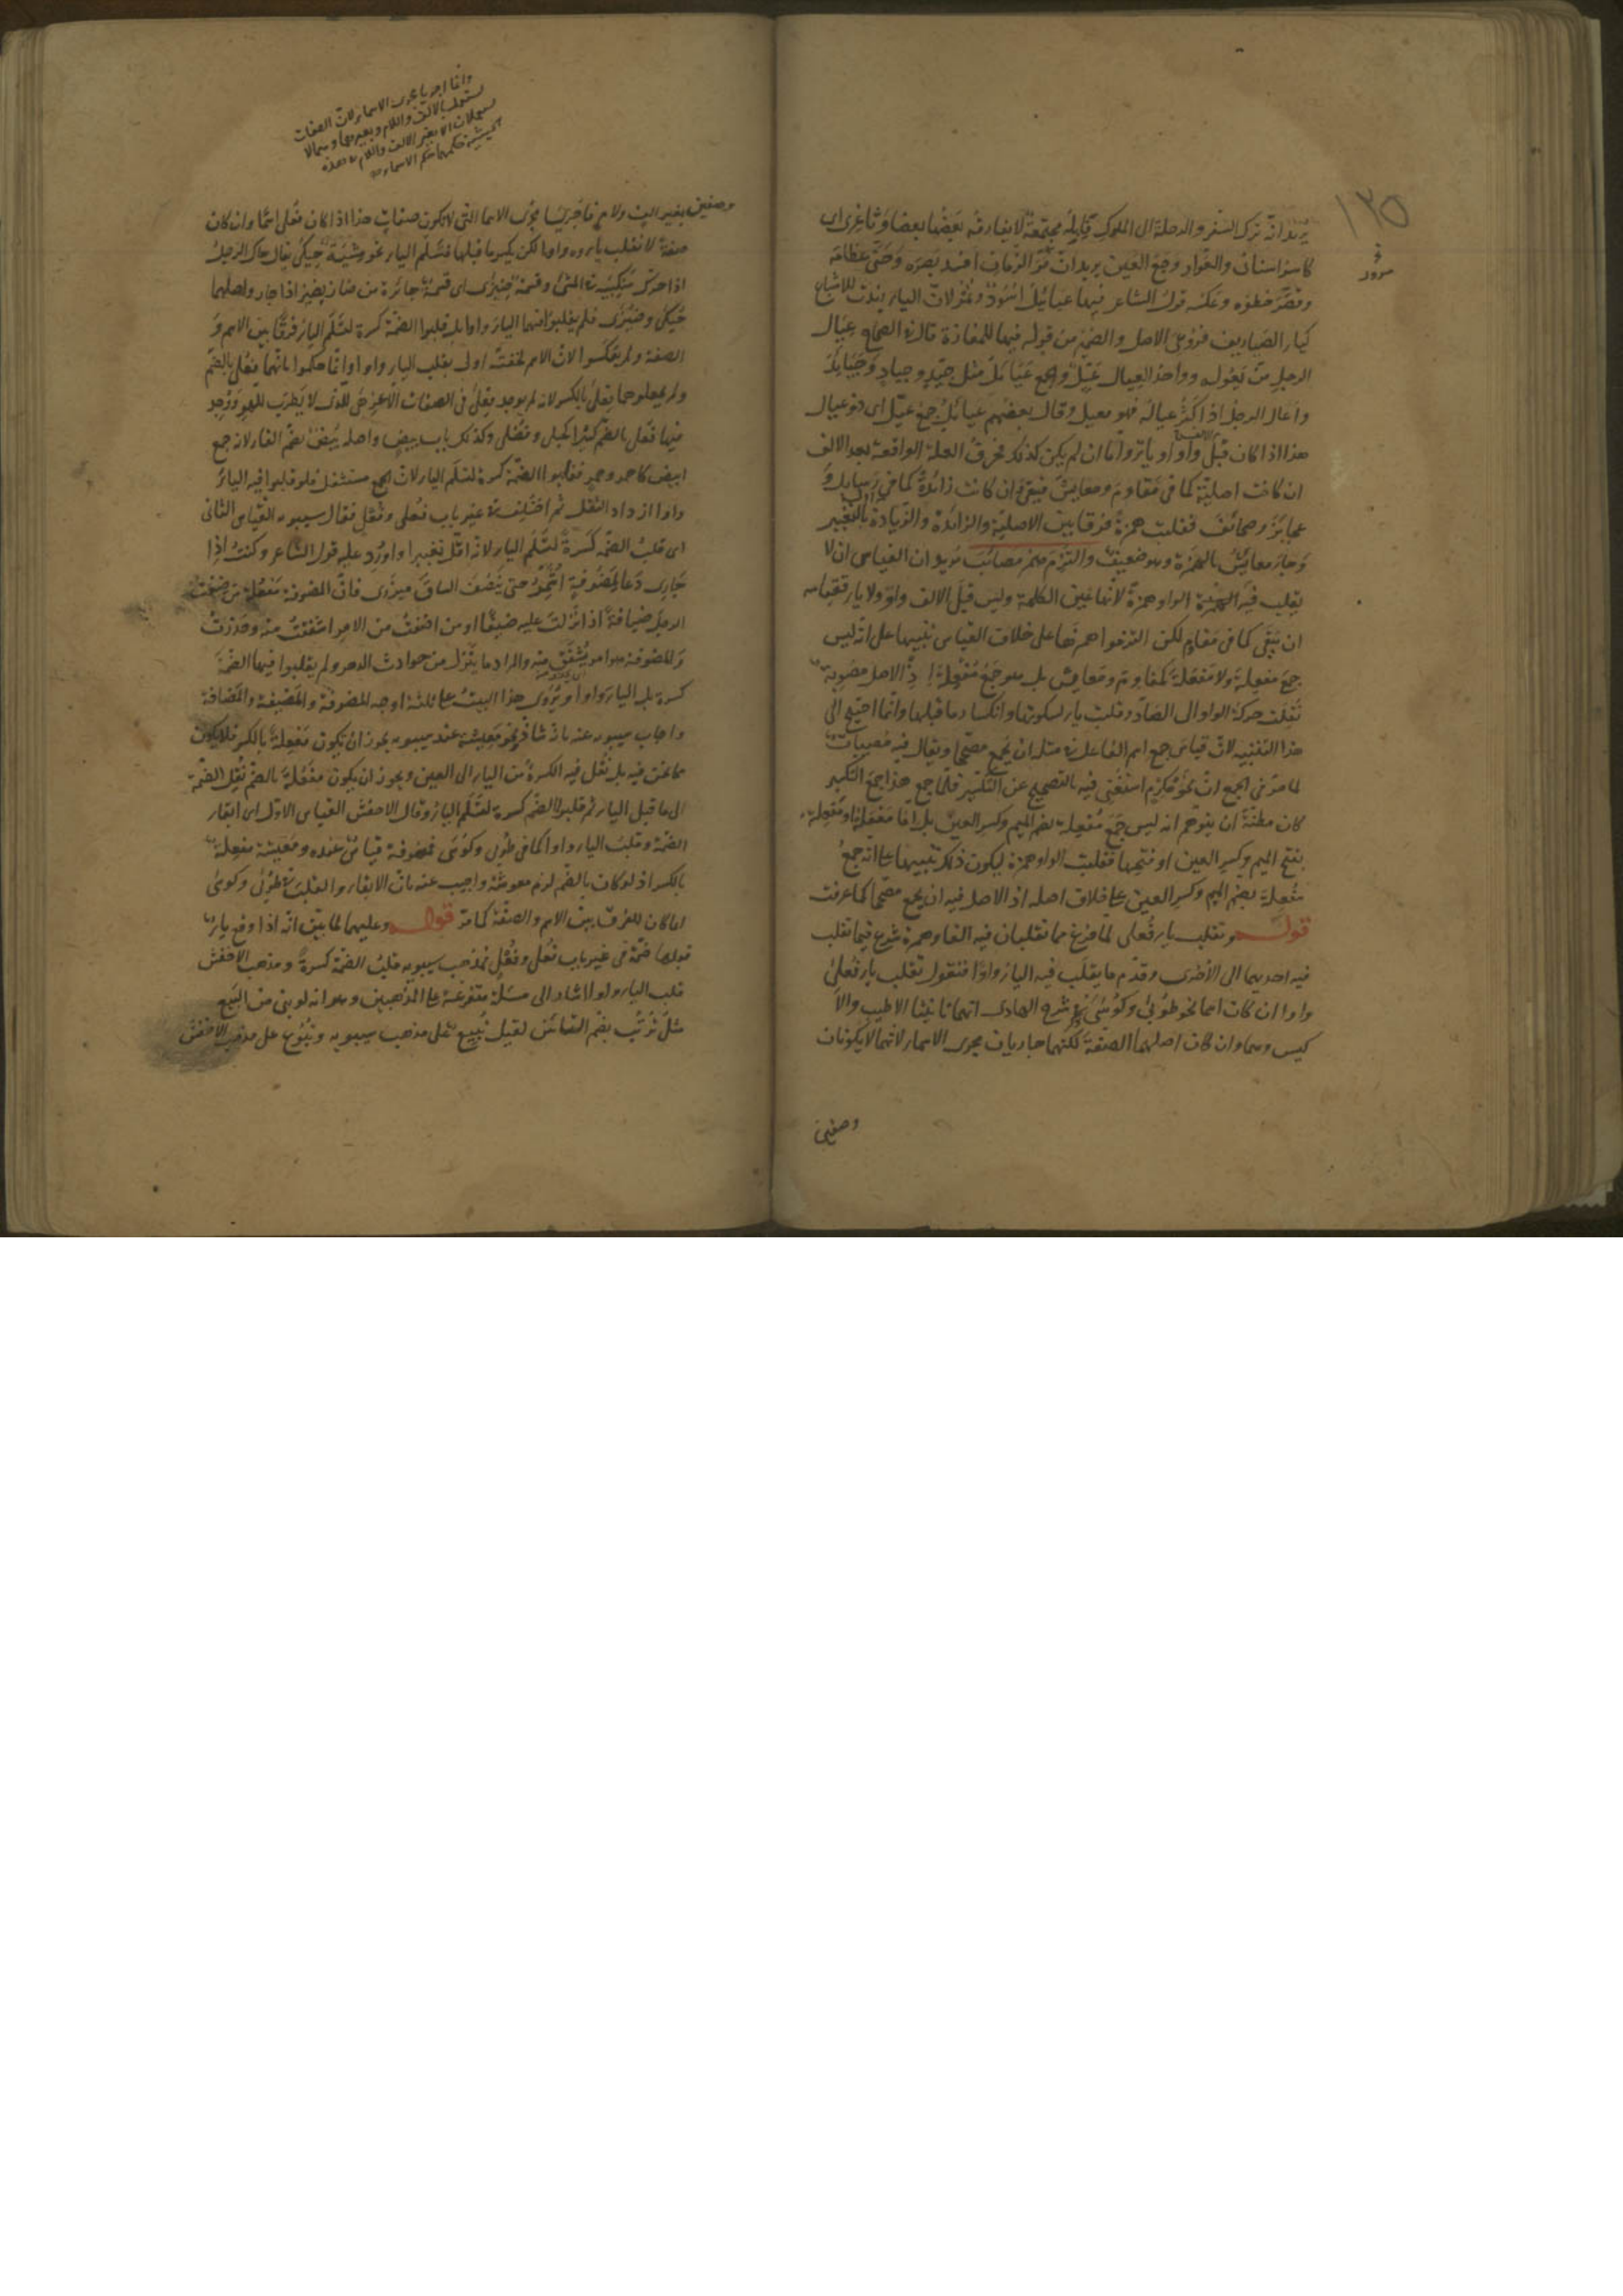 ١٣٥
يريد انه ترك السفر والرحلة الى الملوك قابله مجتمعة لا يفارقه بعضها بعضا وثاغرى اى
كاسر اسنان والعوار وجع العين يريد ان مر الزمان افسد بصره وحنى عظامه
وقصر خطوه وعكسه قول الشاعر فيها عيائيل اسود ونمر لان الياء زيدت للاشباع
كياء الصياريف فروعى الاصل والضمير من قوله فيها للمفازة قال فى الصحاح عيال
الرجل من يعوله وواحد العيال عيّل والجمع عيائل مثل جيّد وجياد وجيائد
واعال الرجل اذا كثر عياله فهو معيل وقال بعضهم عيائل جمع عيّل اى ذو عيال
هذا اذا كان قبل الالف واو او ياء واما ان لم يكن كذلك فحرف العلة الواقعة بعد الالف
ان كانت اصلية كما فى مقاوم ومعايش فيبقى وان كانت زائدة كما فى رسايل و
عجايز وصحائف فقلبت همزة فرقا بين الاصلية والزائدة والزيادة بالتغيير
وجاء معايش بالهمزة وهو ضعيف والتزم همز مصائب يريد ان القياس ان لا
يقلب فيه الواو همزة لانها عين الكلمة وليس قبل الالف واو ولا ياء فقياسه
ان يبقى كما فى مقاوم لكن التزموا همزها على خلاف القياس تنبيها على انه ليس
جمع مفعلة ولا مفعلة كمقاوم ومعايش بل هو جمع مفعلة اذ الاصل مصوبة
نقلت حركة الواو الى الصاد وقلبت ياء لسكونها وانكسار ما قبلها وانما احتيج الى
هذا التنبيه لان قياس جمع اسم الفاعل فى مثله ان يجمع مصححا ويقال فيه مصيبات
لما مر فى الجمع ان نحو مكرم استغنى فيه بالتصحيح عن التكسير فلما جمع هذا جمع التكسير
كان مظنة ان يتوهم انه ليس جمع مفعلة بضم الميم وكسر العين بل اما مفعلة او مفعلة
بفتح الميم وكسر العين او فتحها فقلبت الواو همزة ليكون ذلك تنبيها على انه جمع
مفعلة بضم الميم وكسر العين على خلاف اصله اذ الاصل فيه ان يجمع مصححا كما عرفت
قوله وتقلب ياء فعلى لما فرغ مما تقلبان فيه الفا وهمزة شرع فيما تقلب
فيه احديهما الى الاخرى وقدم ما يقلب فيه الياء واوا فنقول تقلب ياء فعلى
واوا ان كانت اسما نحو طوبى وكوسى فى شرح الهادى انهما تانيثا الاطيب والا
كيس وهما وان كان اصلهما الصفة لكنهما جاريان مجرى الاسماء لانهما لا يكونان
وصفين
وانما اجريا مجرى الاسماء لان الصفات
تستعمل بالالف واللام وبغيرهما وهما لا
يستعملان الا بغير الالف واللام
فحكمهما حكم الاسماء
وصفين بغير الف ولام فاجريتا مجرى الاسماء التى لا تكون صفات هذا اذا كان فعلى اسما وان كان
صفة لا تقلب ياءه واوا لكن يكسر ما قبلها فتسلم الياء نحو مشية حيكى يقال حاك الرجل
اذا حرك منكبيه فى المشى وقسمة ضيزى اى قسمة جائرة من ضاز يضيز اذا جار واصلهما
حيكى وضيزى فلم يقلبوا فيهما الياء واوا بل قلبوا الضمة كسرة لتسلم الياء فرقا بين الاسم و
الصفة ولم يعكسوا لان الاسم لخفته اولى بقلب الياء واوا وانما حكموا بانهما فعلى بالضم
ولم يجعلوهما فعلى بالكسر لانه لم يوجد فعلى فى الصفات الا عزهى للذى لا يطرب للهو ووجد
فيها فعلى بالضم كثيرا كحبلى وفضلى وكذلك باب بيض واصله بيض بضم الفاء لانه جمع
ابيض كاحمر وحمر فقلبوا الضمة كسرة لتسلم الياء لان الجمع مستثقل فلو قلبوا فيه الياء
واوا ازداد الثقل ثم اختلف فى غير باب فعلى وفعل فقال سيبويه القياس الثانى
اى قلب الضمة كسرة لتسلم الياء لانه اقل تغييرا واورد عليه قول الشاعر وكنت اذا
جارى دعا لمضوفة اشمر حتى ينصف الساق ميزرى فان المضوفة مفعلة من ضفت
الرجل ضيافة اذا نزلت عليه ضيفا او من اضفت من الامر اشفقت منه وحذرت
والمضوفة هو امر يشفق منه والمراد ما ينزل من حوادث الدهر ولم يقلبوا فيها الضمة
كسرة بل الياء واوا ويروى هذا البيت على ثلثة اوجه المضوفة والمضيفة والمضافة
واجاب سيبويه عنه بانه شاذ ونحو معيشة عند سيبويه يجوز ان يكون مفعلة بالكسر فلا يكون
مما نحن فيه بل نقل فيه الكسرة من الياء الى العين ويجوز ان يكون مفعلة بالضم نقل الضمة
الى ما قبل الياء ثم قلبوا الضم كسرة لتسلم الياء وقال الاخفش القياس الاول اى ابقاء
الضمة وقلب الياء واوا كما فى طوبى وكوسى فمضوفة قياس عنده ومعيشة مفعلة
بالكسر اذ لو كان بالضم لزم معوشة واجيب عنه بان الابقاء والقلب فى طوبى وكوسى
انما كان للفرق بين الاسم والصفة كما مر قوله وعليهما لما بين انه اذا وقع ياء
قبلها ضمة فى غير باب فعلى وفعل فمذهب سيبويه قلب الضمة كسرة ومذهب الاخفش
قلب الياء واوا اشار الى مسئلة متفرعة على المذهبين وهو انه لو بنى من البيع
مثل ترتب بضم التائين لقيل تبيع على مذهب سيبويه وتبوع على مذهب الاخفش